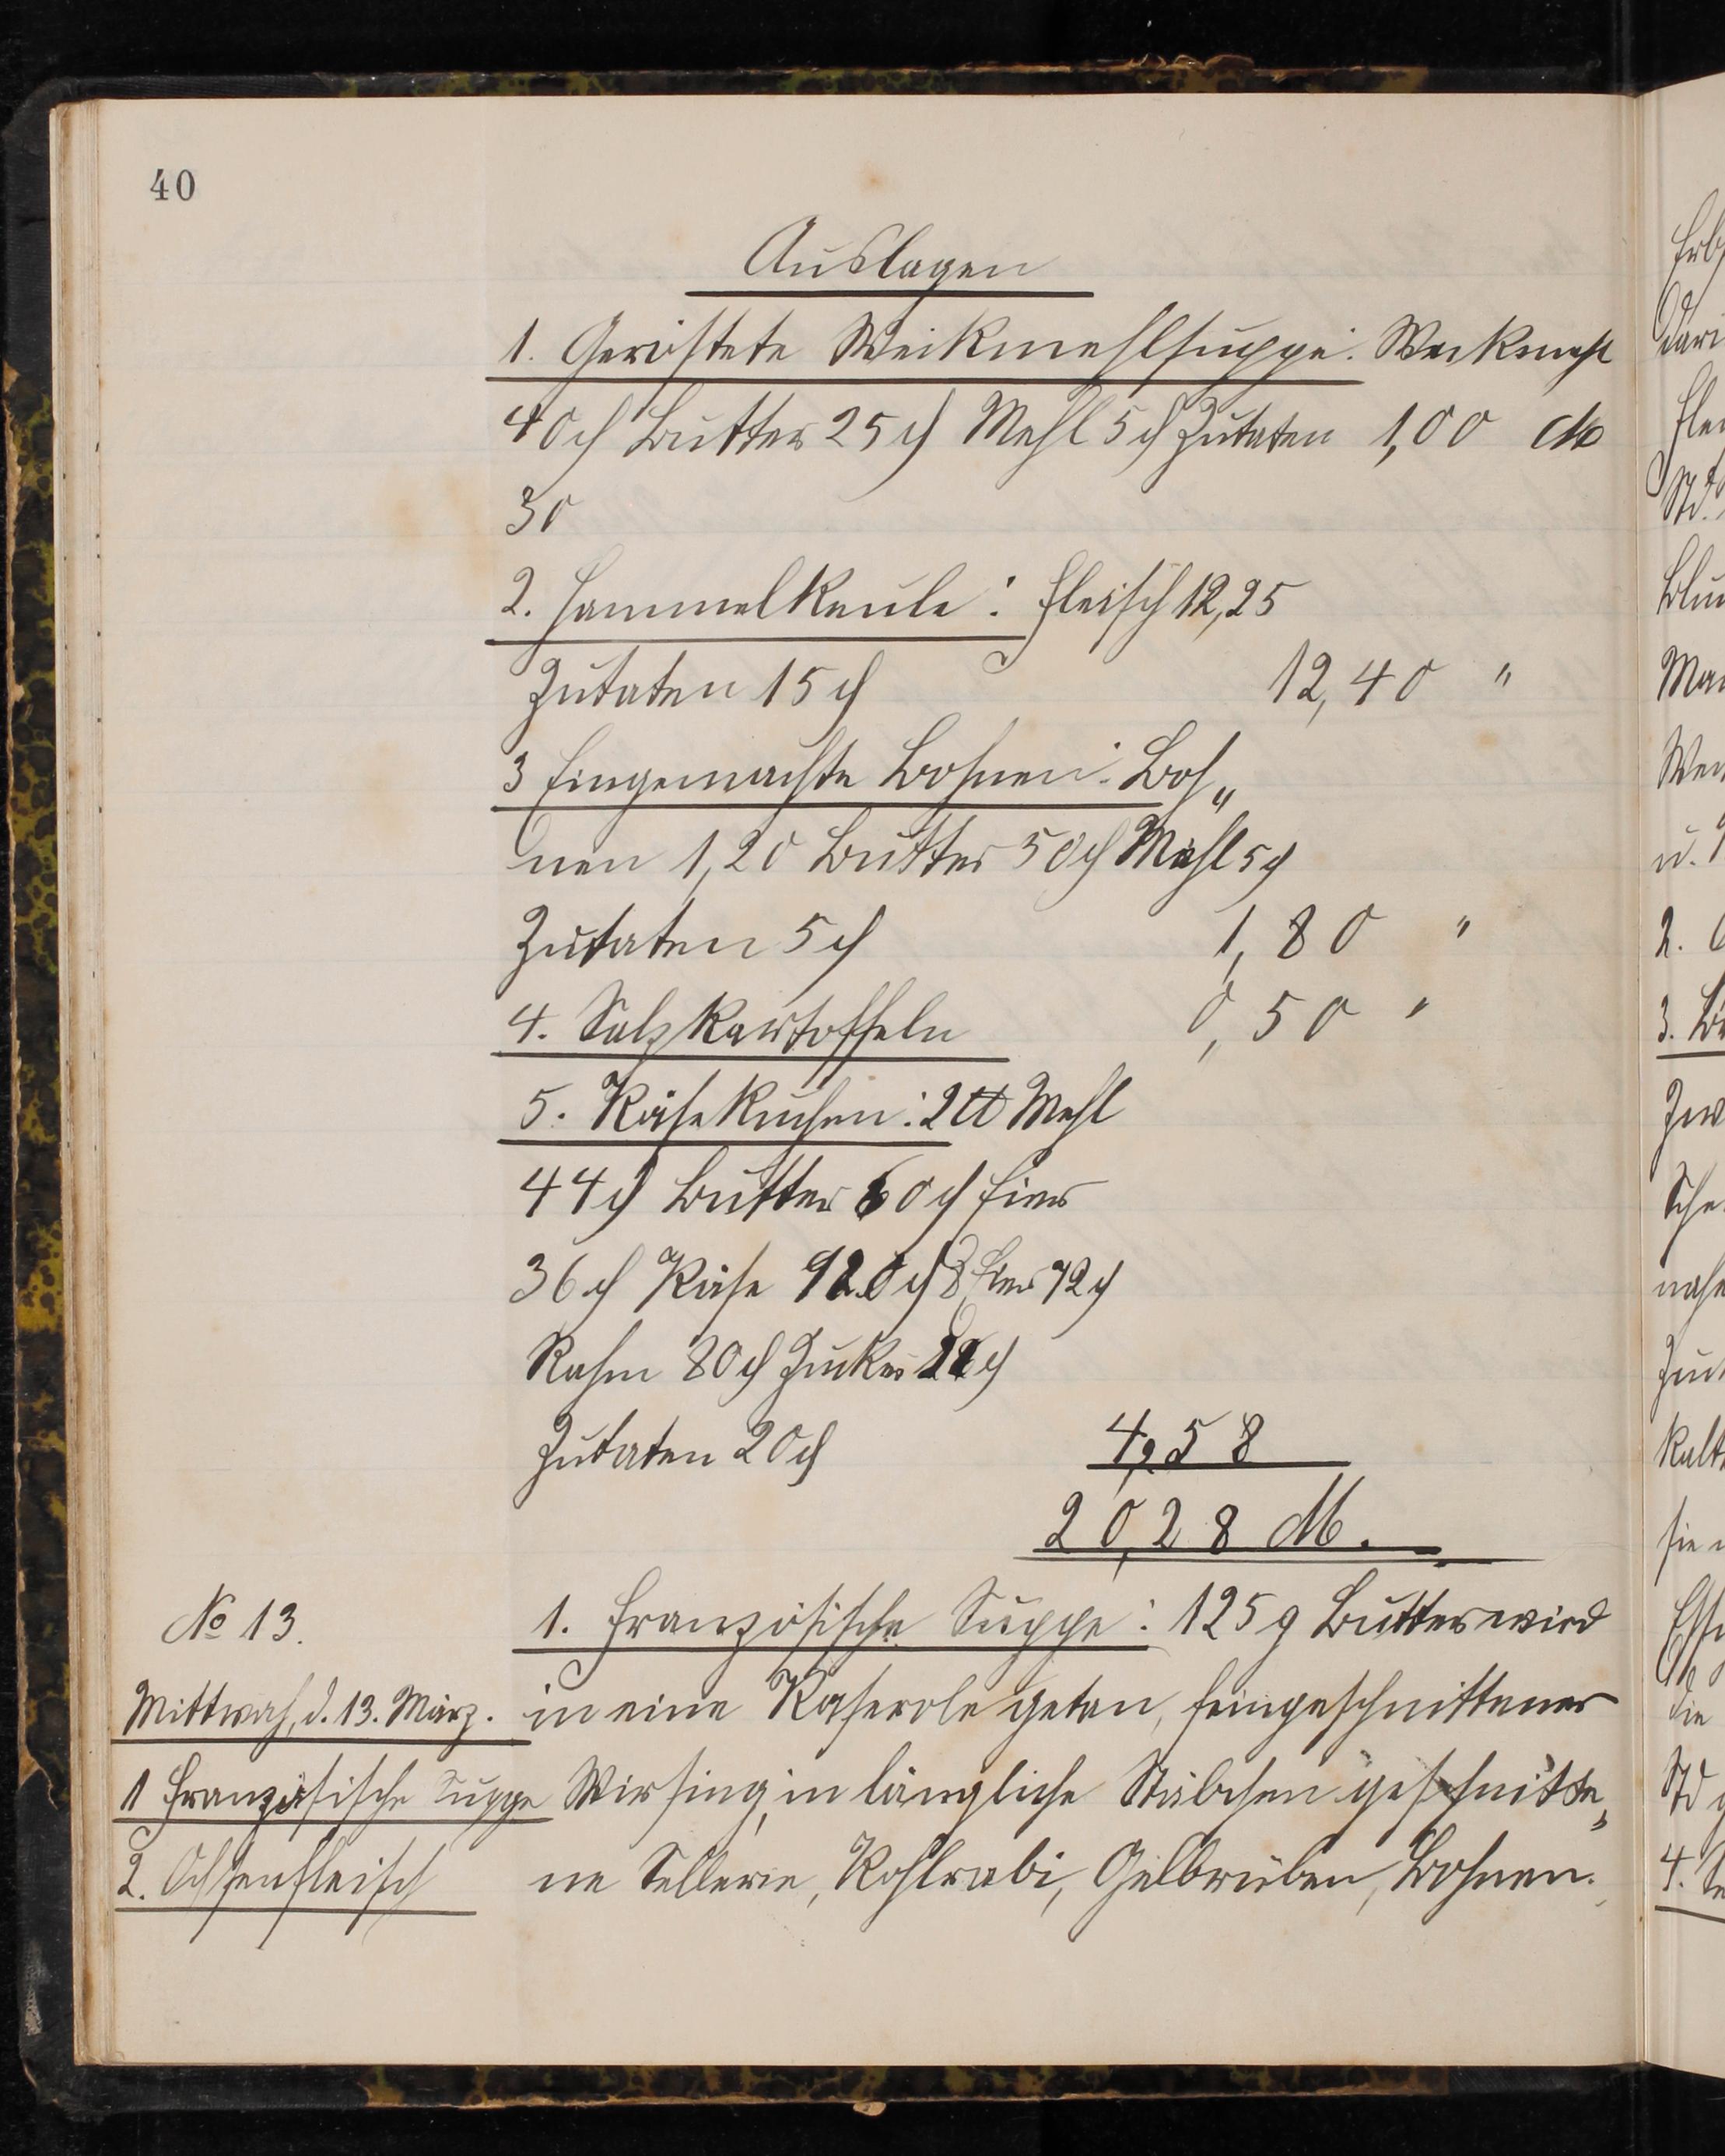 40
Auslagen
1. Geröstete Weckmehlsuppe. Weckmehl
40 ₰ Butter 25 ₰ Mehl 5 ₰ Zutaten 1,00 M
30
2. Hammelkeule: Fleisch 12,25
Zutaten 15 ₰ 12,40 "
3 Eingemachte Bohnen: Boh„
nen 1,20 Butter 50 ₰ Mehl 5 ₰
Zutaten 5 ₰ 1,80 "
4. Salzkartoffeln 0,50 "
5. Käsekuchen: 2 ℔ Mehl
44 ₰ Butter 60 ₰ Eier
36 ₰ Käse ₰ 8 Eier 72 ₰
Rahm 80 ₰ Zucker ₰
Zutaten 20 ₰ 4,58
20,28 M.
№ 13.
Mittwoch, d. 13. März.
1 Französische Suppe
2. Ochsenfleisch
1. Französische Suppe: 125 g Butter wird
in eine Kaserole getan, feingeschnittener
Wirsing, in längliche Stäbchen geschnitte„
ne Sellerie, Kohlrabi, Gelbrüben, Bohnen.